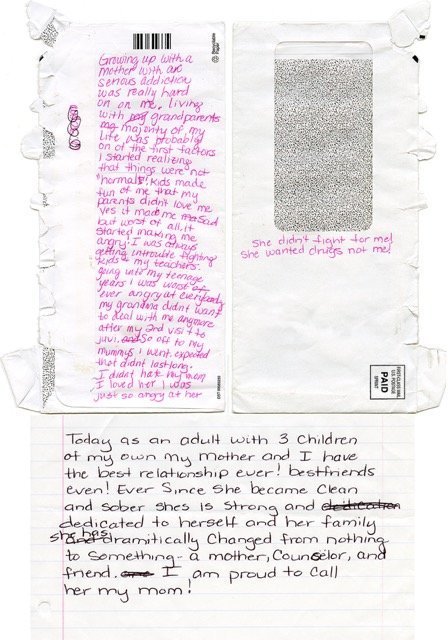 Growing up with a
mother with an
serious addiction
was really hard
on on me. living
with my grandparents
my majority of my
life was probably
on of the first factors
I started realizing
that things were not
"normal"! Kids made
fun of me that my
parents didn't love me
yes it made me sad
but worst of all, it
started making me
angry. I was always
getting introuble fighting
kids & my teachers.
going into my teenage
years I was worst of
ever angry at everybody
my grandma didn't want
to deal with me anymore
after my 2nd visit to
juvi. and So off to my
mummys I went. expected
that didnt last long.
I didnt hate my mom
I loved her I was
just so angry at her
She didn't fight for me!
She wanted drugs not me!
FIRST-CLASS MAIL
U.S. POSTAGE
PAID
SPRINT
Today as an adult with 3 children
of my own my mother and I have
the best relationship ever! bestfriends
even! Ever Since She became Clean
and sober shes is Strong and dedication
dedicated to herself and her family
she has
and dramitically Changed from nothing
to Something - a mother, Counselor, and
friend. I am proud to Call
her my mom!